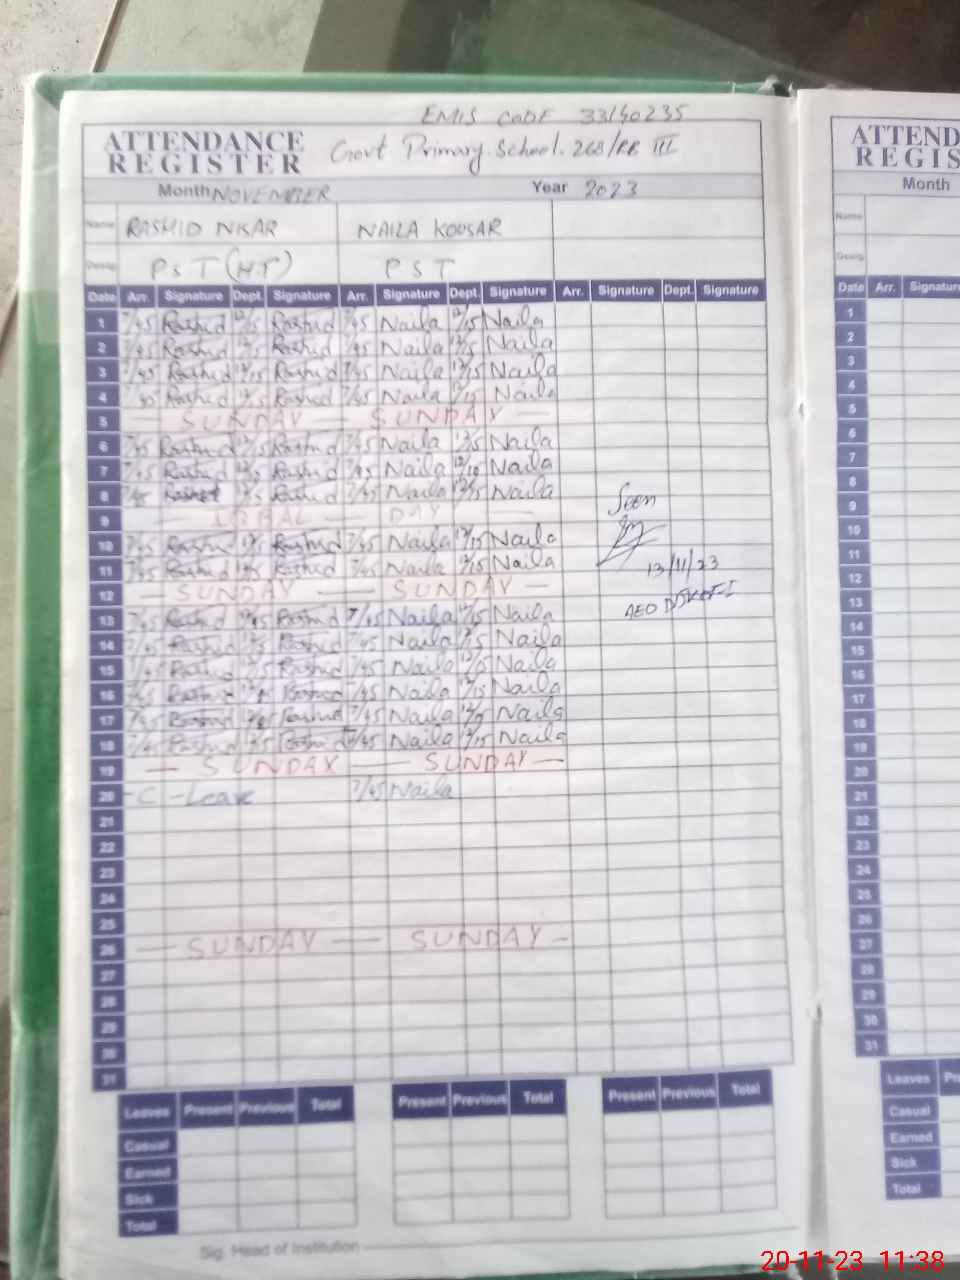 EMIS CODE 33140235
ATTENDANCE REGISTER Govt Primary School. 268/RB III
Month NOVEMBER Year 2023
Name RASHID NISAR NAILA KOUSAR
Desig. PST (H.T) PST
Date Arr. Signature Dept. Signature Arr. Signature Dept. Signature Arr. Signature Dept. Signature
1 7/45 Rashid 12/15 Rashid 7/45 Naila 12/15 Naila
2 7/45 Rashid 12/15 Rashid 7/45 Naila 12/15 Naila
3 7/45 Rashid 12/15 Rashid 7/45 Naila 12/15 Naila
4 Rashid 12/15 Rashid 7/45 Naila 12/15 Naila
5 — SUNDAY — SUNDAY —
6 7/45 Rashid 12/15 Rashid 7/45 Naila 12/15 Naila
7 7/45 Rashid Rashid 7/45 Naila Naila
8 7/45 Rashid 12/15 Rashid 7/45 Naila 12/15 Naila
Seen
9 — IQBAL — DAY —
10 7/45 Rashid Rashid 7/45 Naila 12/15 Naila
11 7/45 Rashid Rashid 7/45 Naila 12/15 Naila
13/11/23
12 — SUNDAY — SUNDAY —
AEO
13 7/45 Rashid Rashid 7/45 Naila 12/15 Naila
14 7/45 Rashid 12/15 Rashid 7/45 Naila 12/15 Naila
15 Rashid 12/15 Rashid 7/45 Naila 12/15 Naila
16 7/45 Rashid Rashid 7/45 Naila 12/15 Naila
17 7/45 Rashid Rashid 7/45 Naila Naila
18 7/45 Rashid 12/15 Rashid 7/45 Naila 12/15 Naila
19 — SUNDAY — SUNDAY —
20 - C - Leave 7/45 Naila
21
22
23
24
25
26 — SUNDAY — SUNDAY -
27
28
29
30
31
Leaves Present Previous Total Present Previous Total Present Previous Total
Casual
Earned
Sick
Total
Sig. Head of Institution
ATTEND
REGIS
Month
Name
Desig.
Date Arr. Signature
1
2
3
4
5
6
7
8
9
10
11
12
13
14
15
16
17
18
19
20
21
22
23
24
25
26
27
28
29
30
31
Leaves Pr
Casual
Earned
Sick
Total
20-11-23 11:38